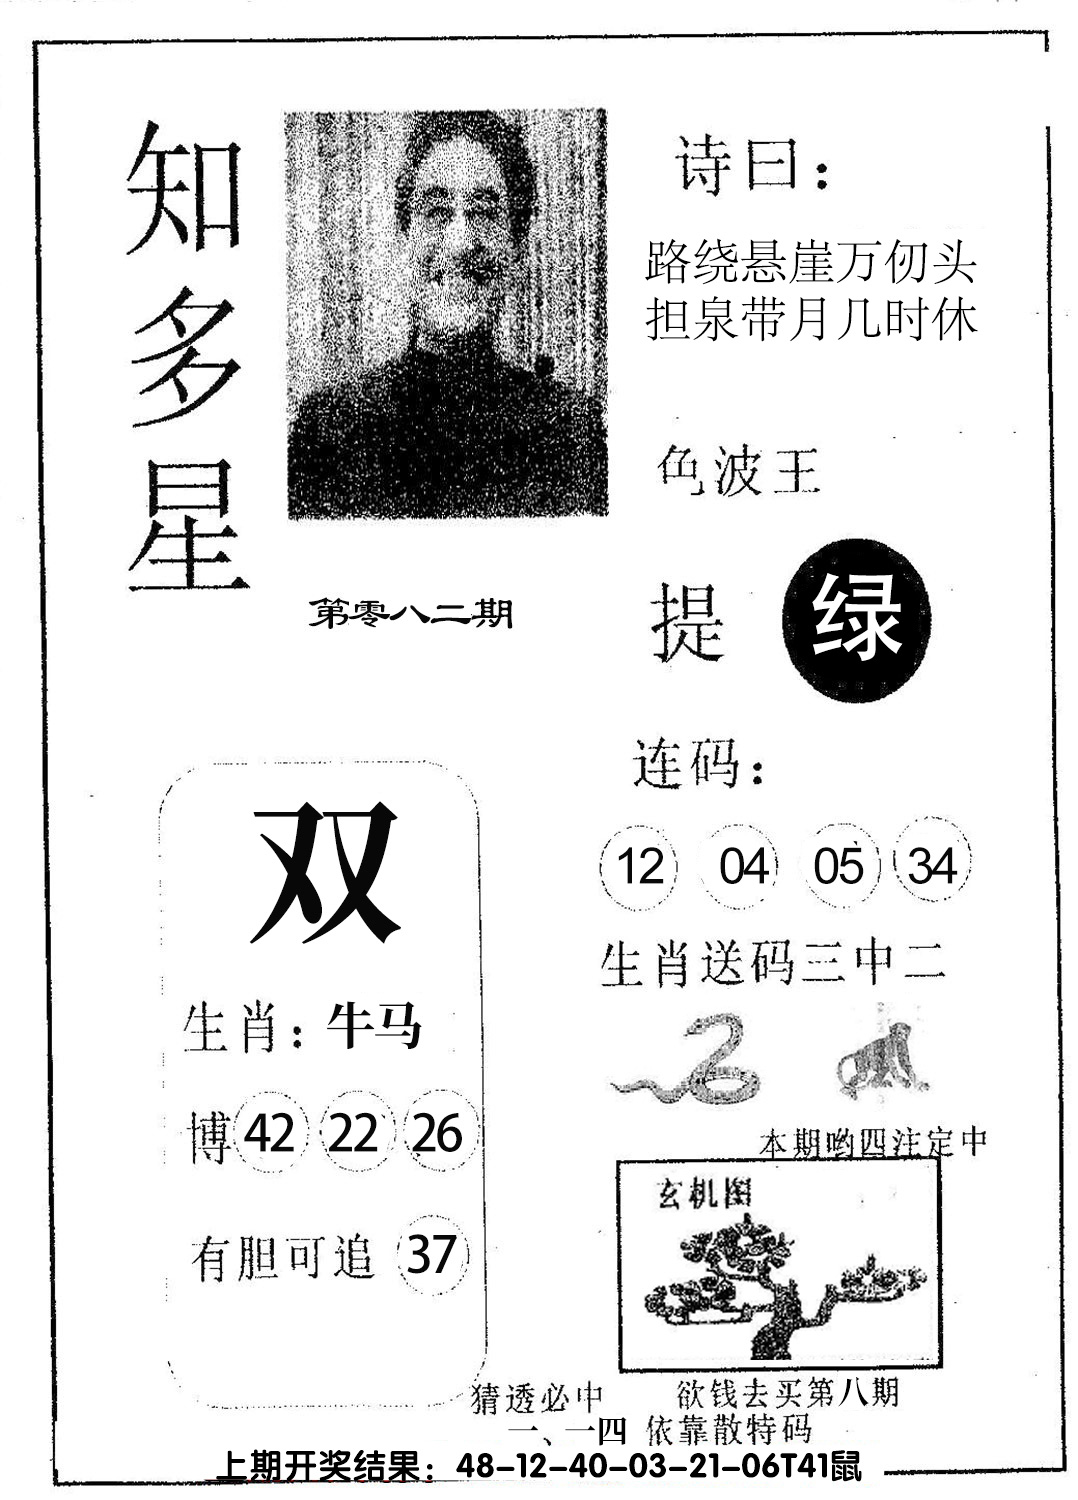 知多星
诗曰：
路绕悬崖万仞头
担泉带月几时休
色波王
提 绿
第零八二期
连码：
12 04 05 34
生肖送码三中二
双
生肖：牛马
博 42 22 26
有胆可追 37
本期哟四注定中
玄机图
猜透必中 欲钱去买第八期
一、一四 依靠散特码
上期开奖结果：48-12-40-03-21-06T41鼠